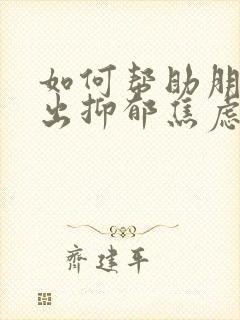 如何帮助朋
出抑郁焦虑
齐建平